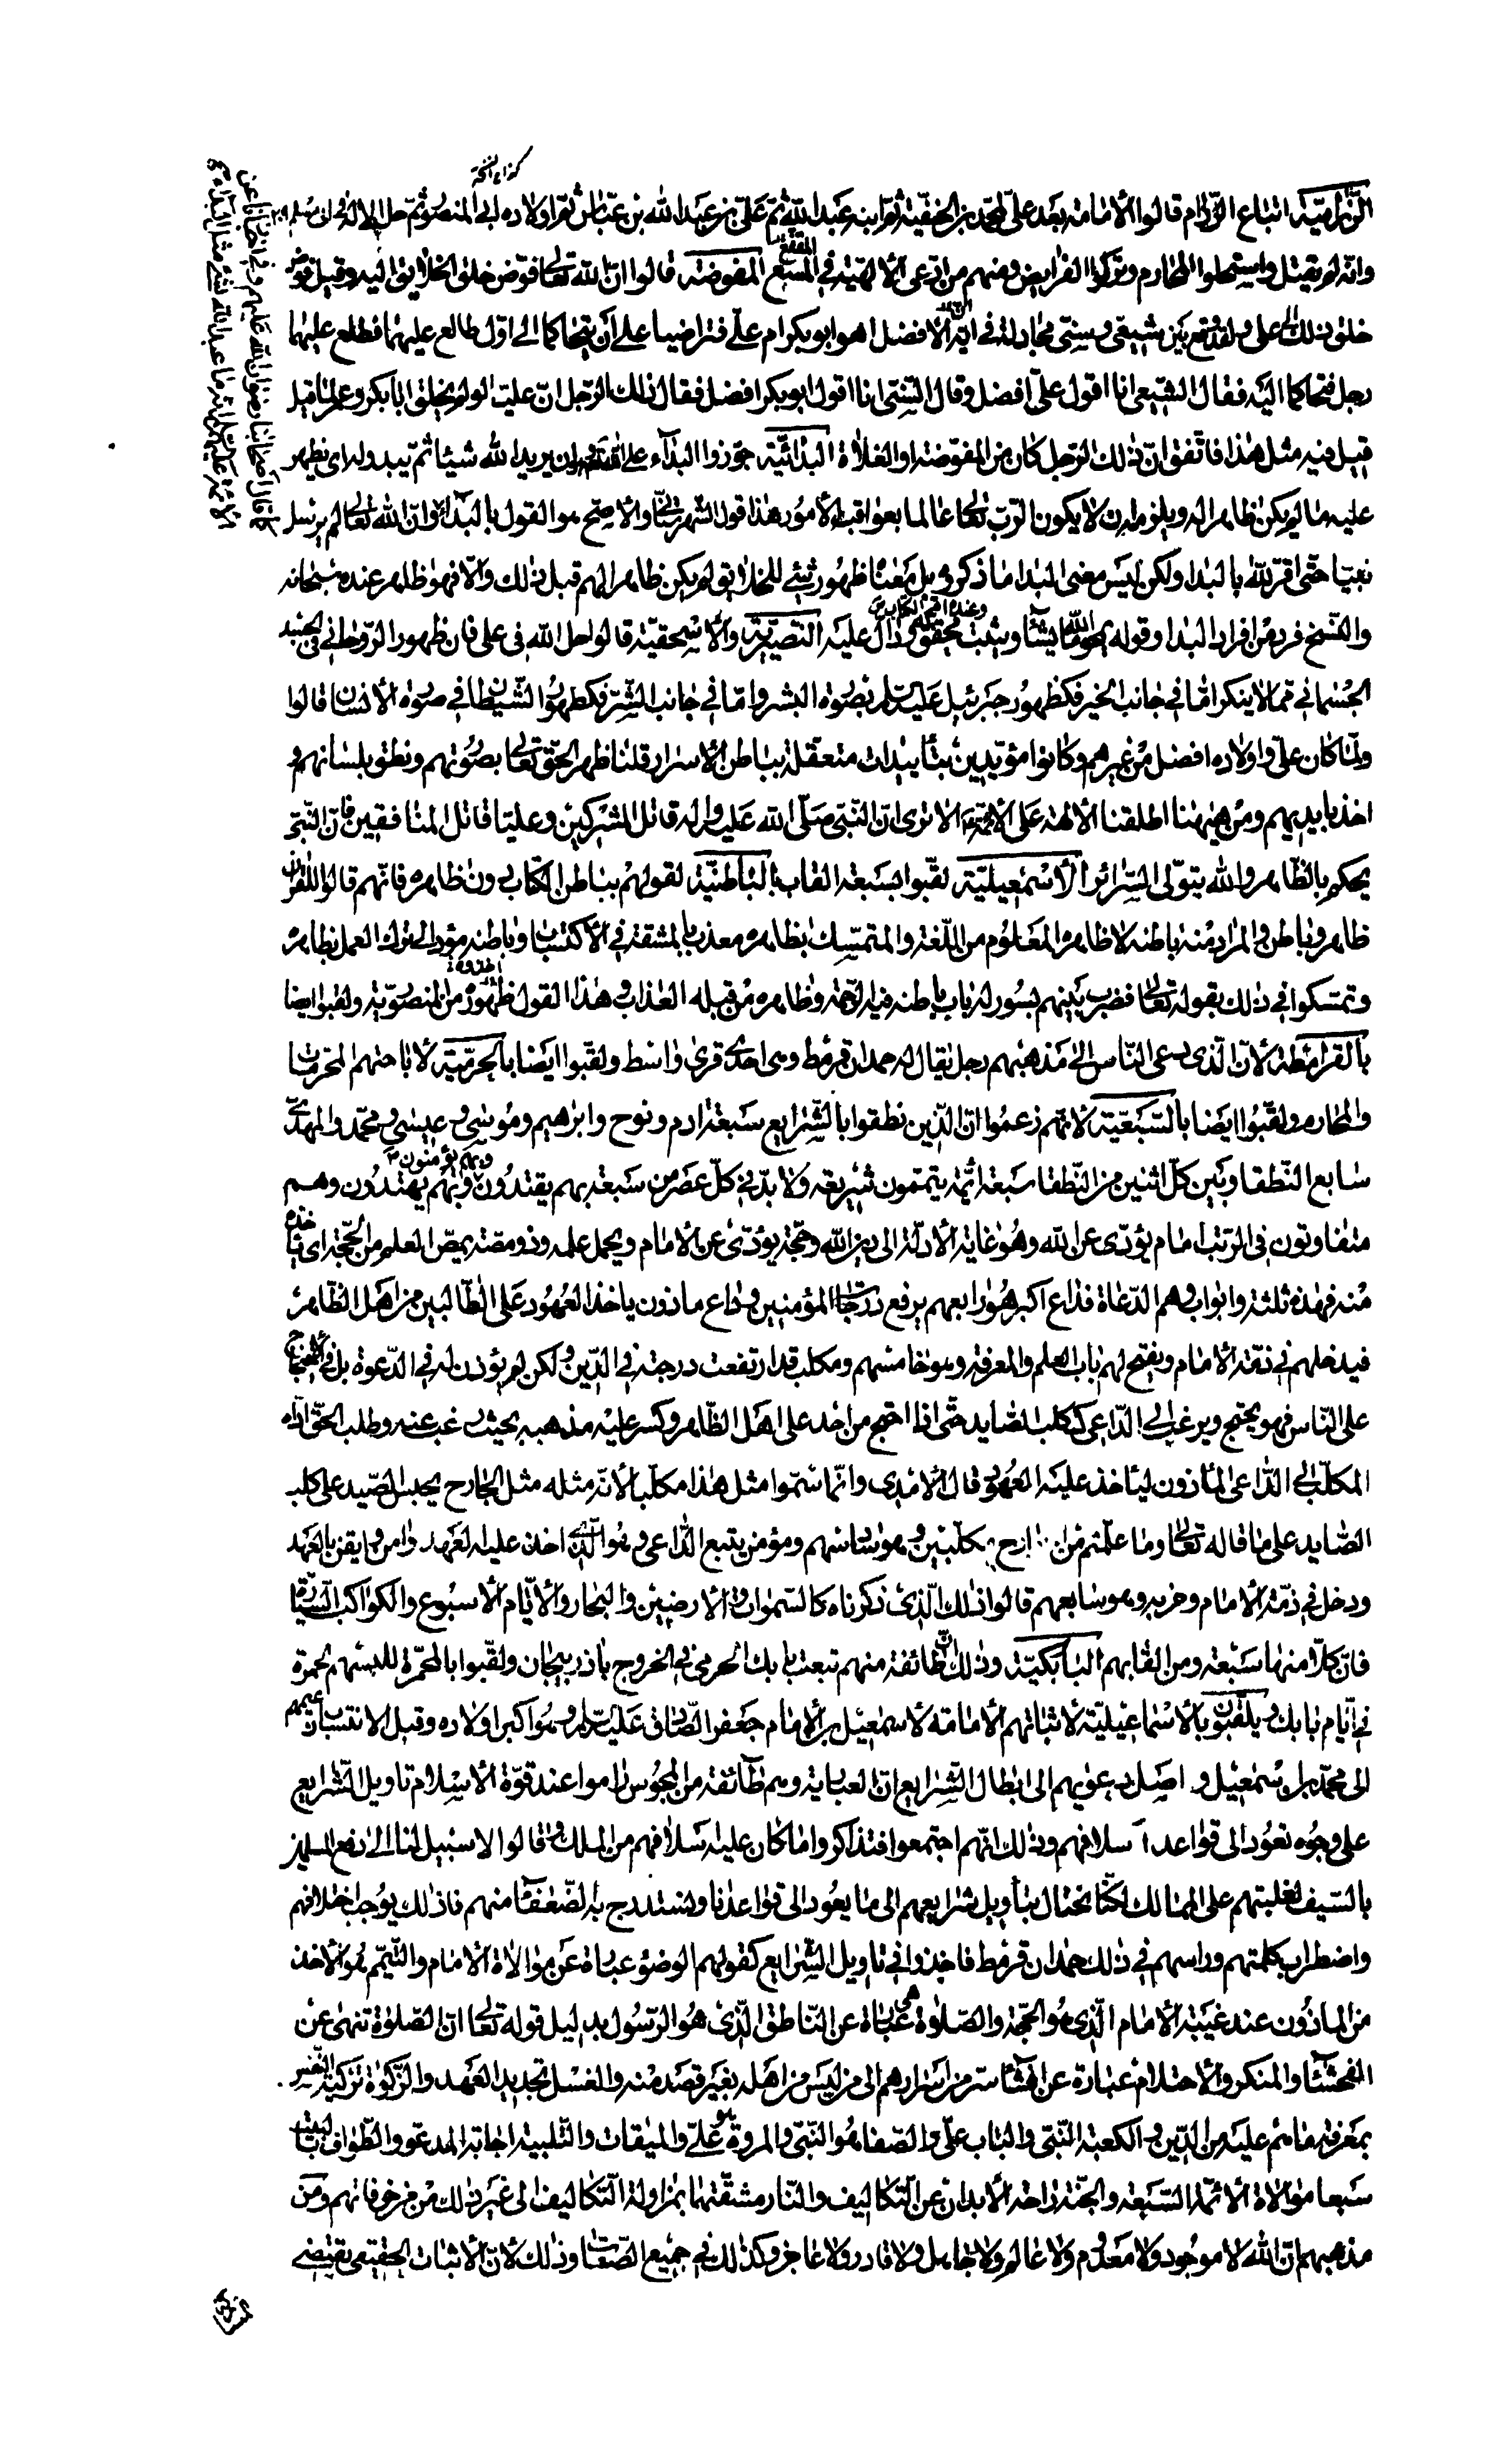 الزراميّة اتباع الزرام قالوا الأمامة بعد علىّ لمحمّد بن الحنفيّة ثم ابنه عبد الله ثمّ علىّ بن عبد الله بن عبّاس ثم اولاده الى المنصور ثمّ حل الاله فى ابى مسلم
وانه لم يقتل واستحلوا المحارم وتركوا الفرايض ومنهم من ادّعى الألهيّة فى المقنع المفوضة قالوا انّ الله تعالى فوّض خلق الخلايق اليه وقيل فوض
خلق ذلك الى على وقد وقع بين شيعى وسنّى مجادلة فى انّ الأفضل اهو ابو بكر ام علىّ فتراضيا على أن يتحاكما الى اوّل طالع عليهما فطلع عليهما
رجل فتحاكما اليه فقال الشيعى انا اقول علىّ افضل وقال السّنى انا اقول ابو بكر افضل فقال ذلك الرّجل انّ عليّا لو لم يخلق ابا بكر وعمر لما قيل
قيل فيه مثل هذا فاتّفق انّ ذلك الرّجل كان من المفوّضة او الغلاة البدائيّة جوّزوا البداء على الله تعالى وان يريد الله شيئا ثمّ يبدو له اى يظهر
عليه ما لم يكن ظاهرا له ويلزمه ان لا يكون الربّ تعالى عالما بعواقب الأمور هذا قول الشهرستانى والأصحّ هو القول بالبداء وانّ الله تعالى لم يرسل
نبيّا حتّى اقرّ لله بالبدا ولكن ليس معنى البدا ما ذكروه بل معناه ظهور شئ للخلايق لم يكن ظاهرا لهم قبل ذلك والا فهو ظاهر عنده سبحانه
والنّسخ فرد من افراد البدا وقوله يمحو الله ما يشآء ويثبت وعنده امّ الكتاب دالّ عليه النصيريّة والأسحقيّة قالوا حلّ الله فى على فان ظهور الرّوحانى فى الجسد
الجسمانى ممّا لا ينكر امّا فى جانب الخير فكظهور جبرئيل عليه السلام بصورة البشر وامّا فى جانب الشّر فكظهور الشّيطان فى صورة الأنسان قالوا
ولمّا كان علىّ واولاده افضل من غيرهم وكانوا مؤيّدين بتأييدات متعقلة بباطن الأسرار قلنا ظهر الحقّ تعالى بصورتهم ونطق بلسانهم و
اخذ بايديهم ومن هيهنا اطلقنا الألهة على الأئمّة الا ترى ان النّبى صلّى الله عليه واله قاتل المشركين وعليّا قاتل المنافقين فانّ النّبى
يحكم بالظّاهر والله يتولّى السّرائر الأسمعيليّة لقّبوا بسبعة القاب بالباطنيّة لقولهم بباطن الكتاب دون ظاهره فانّهم قالوا للقرآن
ظاهر وباطن والمراد منه باطنه لا ظاهره المعلوم من اللّغة والمتمسّك بظاهره معذب بالمشقة فى الأكتساب وباطنه مؤد الى ترك العمل بظاهره
وتمسّكوا فى ذلك بقوله تعالى فضرب بينهم بسور له باب باطنه فيه الرّحمة وظاهره من قبله العذاب وهذا القول اخذوه من المنصوريّة ولقبوا ايضا
بالقرامطة لأن الّذى دعى النّاس الى مذهبهم رجل يقال له حمدان قرمط وهى احدى قرى واسط ولقبوا ايضا بالحرميّة لأباحتهم المحرمات
والمحارم ولقّبوا ايضا بالسّبعيّة لانهم زعموا انّ الّذين نطقوا بالشّرايع سبعة ادم ونوح وابرهيم وموسى وعيسى ومحمّد والمهدىّ
سابع النّطقا وبين كلّ اثنين من النّطقا سبعة ائمّة يتممون شريعته ولا بدّ فى كلّ عصر من سبعة بهم يقتدون وبهم يؤمنون وبهم يهتدون وهم
متفاوتون فى الرّتب امام يؤدّى عن الله وهو غاية الأدلّة الى دين الله وحجّة يؤدّى عن الأمام ويحمل علمه وذو مصّة يمصّ العلم من الحجّة اى ياخذه
منه فهذه ثلثة وابواب وهم الدّعاة فداع اكبر هو رابعهم يرفع درجات المؤمنين وداع ماذون ياخذ العهود على الطّالبين من اهل الظّاهر
فيدخلهم فى ذمّة الأمام ويفتح لهم باب العلم والمعرفة وهو خامسهم ومكلب قد ارتفعت درجته فى الدّين ولكن لم يؤذن له فى الدّعوة بل فى الأحتجاج
على النّاس فهو يحتج ويرغب الى الدّاعى ككلب الصّايد حتّى اذا احتج من احد على اهل الظّاهر وكسر عليه مذهبه بحيث رغب عنه وطلب الحقّ اداه
المكلّب الى الدّاعى المأذون ليأخذ عليه العهود قال الأمدى وانّما سمّوا مثل هذا مكلّبا لأنّه مثله مثل الجارح يحبس الصّيد على كلب
الصّايد على ما قاله تعالى وما علّمتم من الجوارح مكلّبين وهو سادسهم ومؤمن يتبع الدّاعى وهو الّذى اخذ عليه العهد وامن وايقن بالعهد
ودخل فى ذمّة الأمام وحزبه وهو سابعهم قالوا ذلك الّذى ذكرناه كالسّموات والأرضين والبحار والأيّام الأسبوع والكواكب السّيّارة
فانّ كلّا منها سبعة ومن القابهم البابكيّة وذلك انّ طائفة منهم تبعت بابك الحرمى فى الخروج باذربيجان ولقّبوا بالمحمّرة للبسهم الحمرة
فى ايّام بابك ويلقّبون بالأسماعيليّة لأثباتهم الأمامة لأسمعيل بن الأمام جعفر الصّادق عليه السلام وهو اكبر اولاده وقيل لانتساب زعيمهم
الى محمّد بن اسمعيل واصل دعوتهم الى ابطال الشّرايع انّ العبايه وهم طآئفة من المجوس راموا عند قوّة الأسلام تاويل الشّرايع
على وجوه تعود الى قواعد اسلافهم وذلك انّهم اجتمعوا فتذاكروا ما كان عليه اسلافهم من الملك وقالوا لا سبيل لنا الى دفع المسلمين
بالسّيف لغلبتهم على الممالك لكنّا نحتال بتأويل شرايعهم الى ما يعود الى قواعدنا ونستدرج به الضّعفآء منهم فان ذلك يوجب اختلافهم
واضطراب كلمتهم وراسهم فى ذلك حمدان قرمط فاخذوا فى تاويل الشّرايع كقولهم الوضوء عبارة عن موالاة الأمام والتّيمّم هو الأخذ
من الماذون عند غيبة الأمام الّذى هو الحجّة والصّلوة هى عبارة عن النّاطق الّذى هو الرّسول بدليل قوله تعالى انّ الصّلوة تنهى عن
الفحشآء والمنكر والأحتلام عبارة عن افشآء سرّ من اسرارهم الى من ليس من اهله بغير قصد منه والغسل تجديد العهد والزّكوة تزكية النّفس
بمعرفة ما هم عليه من الدّين والكعبة النّبى والباب علىّ والصّفا هو النّبى والمروة علىّ والميقات والتّلبية اجابة المدعو والطّواف بالبيت
سبعا موالاة الأئمّة السّبعة والجنّة راحة الأبدان عن التّكاليف والنّار مشقّتها بمزاولة التّكاليف الى غير ذلك من خرفاتهم ومن
مذهبهم انّ الله لا موجود ولا معدوم ولا عالم ولا جاهل ولا قادر ولا عاجز وكذلك فى جميع الصّفات وذلك لأنّ الأثبات الحقيقى يقتضى